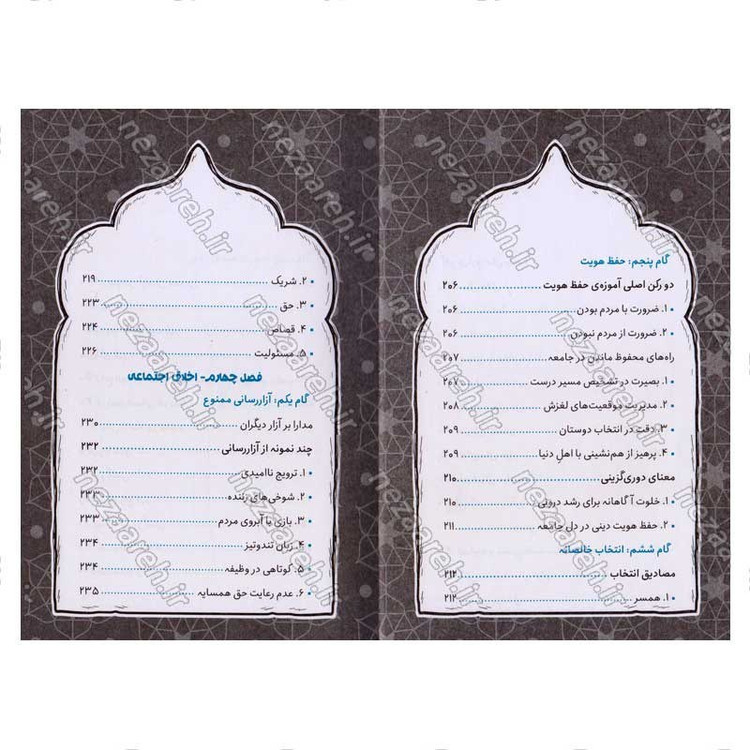 گام پنجم: حفظ هویت
دو رکن اصلی آموزه‌ی حفظ هویت ۲۰۶
• ۱. ضرورت با مردم بودن ۲۰۶
• ۲. ضرورت از مردم نبودن ۲۰۶
راه‌های محفوظ ماندن در جامعه ۲۰۷
• ۱. بصیرت در تشخیص مسیر درست ۲۰۷
• ۲. مدیریت موقعیت‌های لغزش ۲۰۸
• ۳. دقت در انتخاب دوستان ۲۰۹
• ۴. پرهیز از هم‌نشینی با اهل دنیا ۲۰۹
معنای دوری‌گزینی ۲۱۰
• ۱. خلوت آگاهانه برای رشد درونی ۲۱۰
• ۲. حفظ هویت دینی در دل جامعه ۲۱۱
گام ششم: انتخاب خالصانه
مصادیق انتخاب ۲۱۲
• ۱. همسر ۲۱۲
• ۲. شریک ۲۱۹
• ۳. حق ۲۲۳
• ۴. قصاص ۲۲۴
• ۵. مسئولیت ۲۲۶
فصل چهارم- اخلاق اجتماعی
گام یکم: آزاررسانی ممنوع
مدارا بر آزار دیگران ۲۳۰
چند نمونه از آزاررسانی ۲۳۲
• ۱. ترویج ناامیدی ۲۳۲
• ۲. شوخی‌های زننده ۲۳۳
• ۳. بازی با آبروی مردم ۲۳۳
• ۴. زبان تندوتیز ۲۳۴
• ۵. کوتاهی در وظیفه ۲۳۴
• ۶. عدم رعایت حق همسایه ۲۳۵
nezaareh.ir